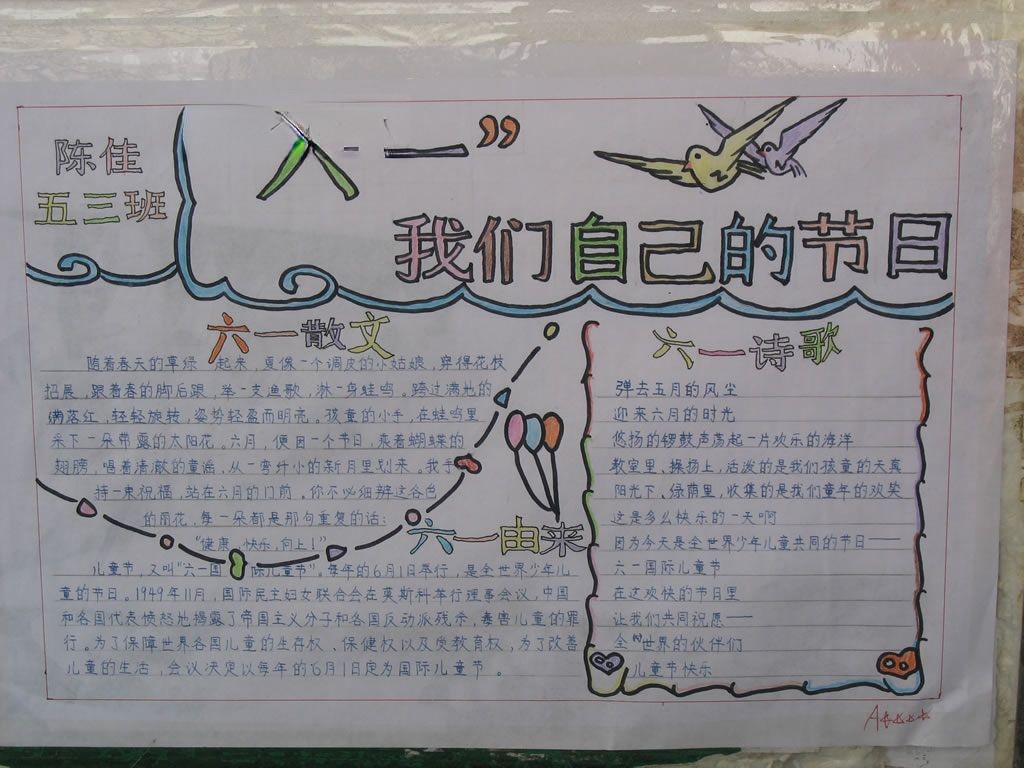 陈佳
五三班
六一”
我们自己的节日
六一散文
随着春天的草绿 起来，夏像一个调皮的小姑娘，穿得花枝
招展，跟着春的脚后跟，举一支渔歌，淋一身蛙鸣。跨过满地的
满落红，轻轻旋转，姿势轻盈而明亮。孩童的小手，在蛙鸣里
采下一朵带露的太阳花。六月，便因一个节日，乘着蝴蝶的
翅膀，唱着清澈的童谣，从一弯纤小的新月里划来。我手
持一束祝福，站在六月的门前。你不必细辨这各色
的雨花，每一朵都是那句重复的话：
“健康，快乐，向上！”
六一由来
儿童节，又叫“六一国 际儿童节”。每年的6月1日举行，是全世界少年儿
童的节日。1949年11月，国际民主妇女联合会在莫斯科举行理事会议，中国
和各国代表愤怒地揭露了帝国主义分子和各国反动派残杀，毒害儿童的罪
行。为了保障世界各国儿童的生存权、保健权以及受教育权，为了改善
儿童的生活，会议决定以每年的6月1日定为国际儿童节。
六一诗歌
弹去五月的风尘
迎来六月的时光
悠扬的锣鼓声荡起一片欢乐的海洋
教室里、操场上，活泼的是我们孩童的天真
阳光下、绿荫里，收集的是我们童年的欢笑
这是多么快乐的一天啊
因为今天是全世界少年儿童共同的节日——
六一国际儿童节
在这欢快的节日里
让我们共同祝愿——
全世界的伙伴们
儿童节快乐
A